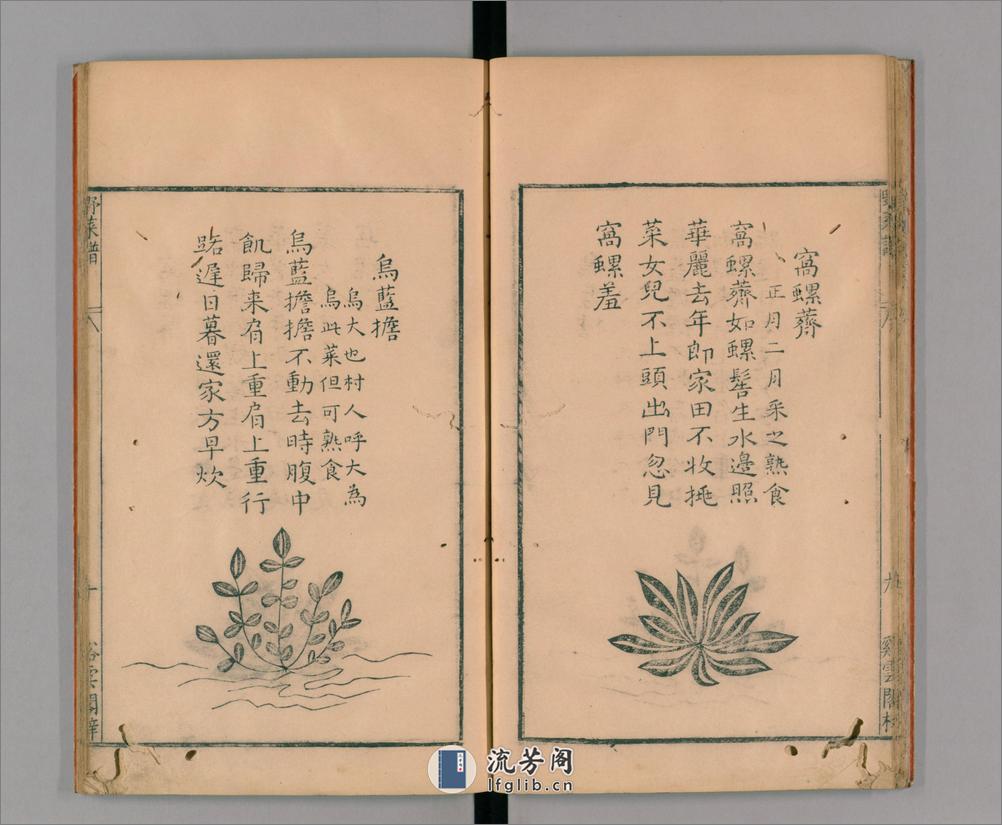 窩螺薺
正月二月采之熟食
窩螺薺如螺髻生水邊照
華麗去年郎家田不收挑
菜女兒不上頭出門忽見
窩螺羞
烏藍擔
烏大也村人呼大為
烏此菜但可熟食
烏藍擔擔不動去時腹中
飢歸来肩上重肩上重行
路遲日暮還家方早炊
野菜譜
八
十
野菜譜
八
九
流芳阁
lfglib.cn